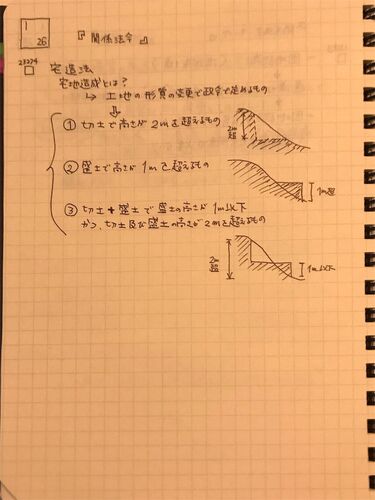 1
26
『関係法令』
23224
宅造法
宅地造成とは?
↳ 土地の形質の変更で政令で定めるもの
⇩
① 切土で高さが2mを超えるもの
2m超
② 盛土で高さが1mを超えるもの
1m超
③ 切土+盛土で盛土の高さが1m以下
かつ、切土及び盛土の高さが2mを超えるもの
2m超
1m以下